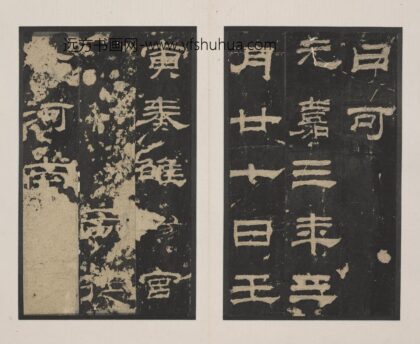 远方书画网-www.yfshuhua.com
曰可
元嘉三年三
月廿七日壬
寅奏雒陽宮
司徒
河南